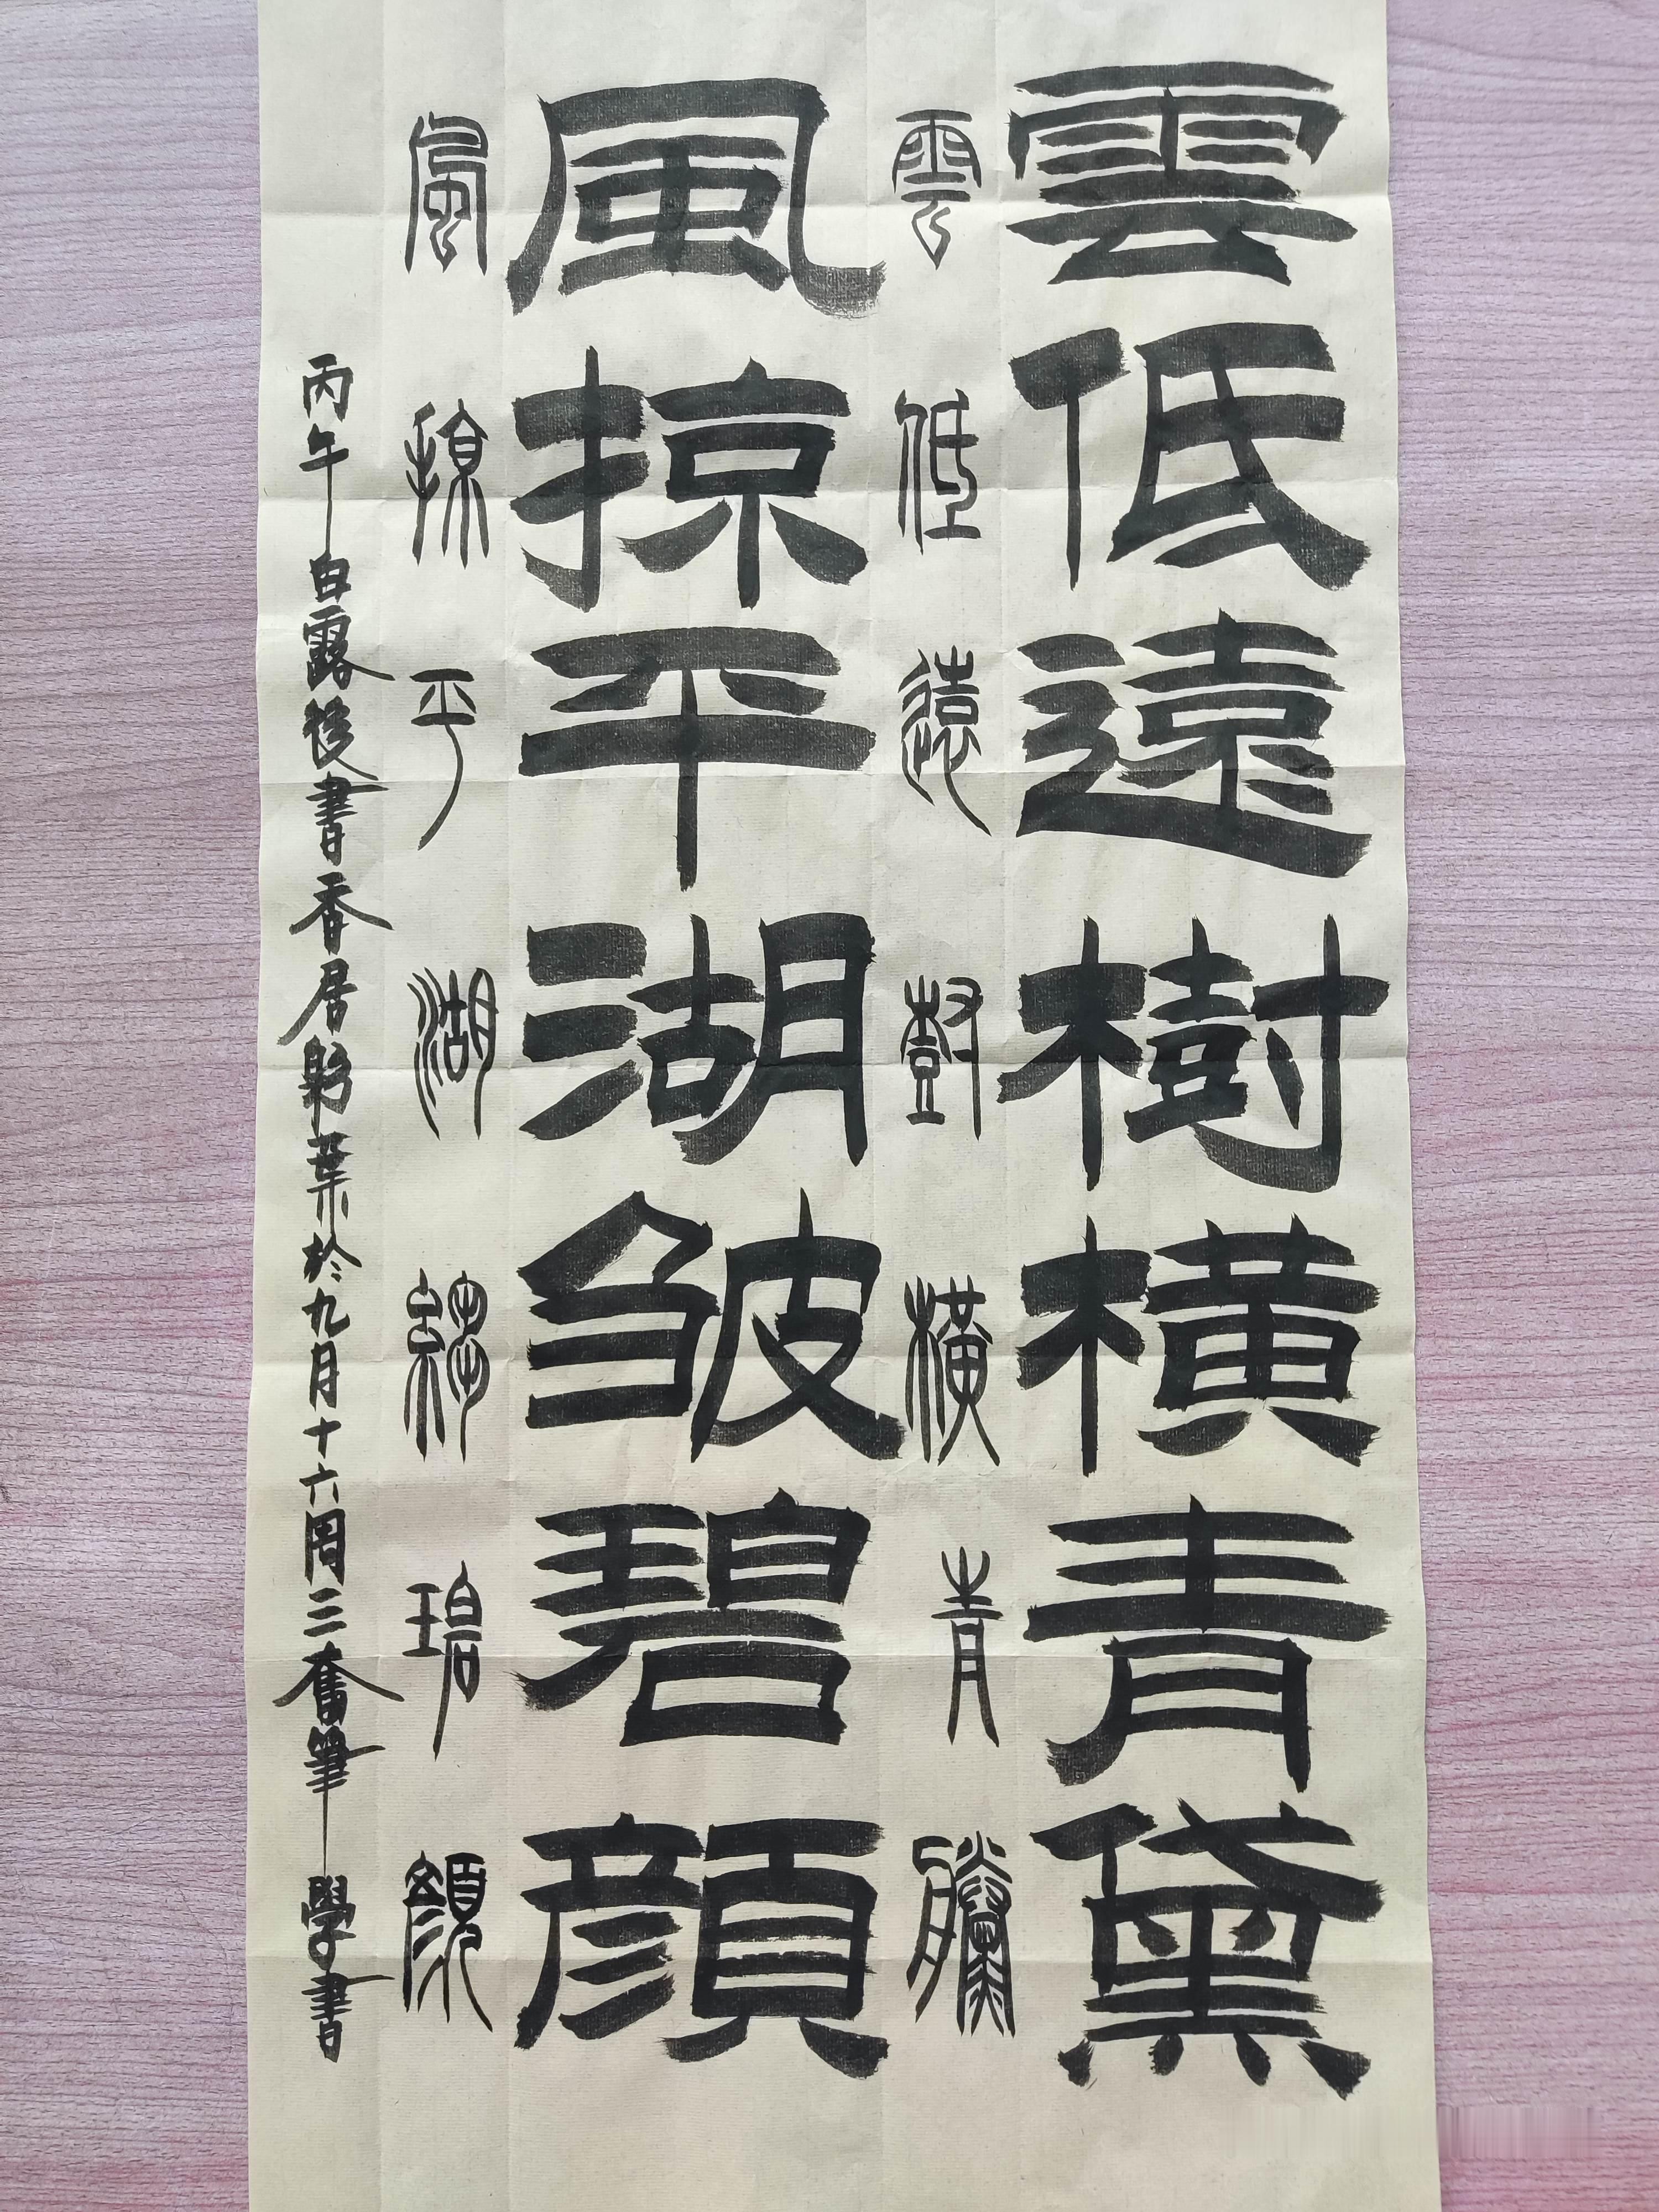 雲低遠樹橫青黛
雲低遠樹橫青黱
風掠平湖皱碧顏
風掠平湖縐碧顏
丙午白露後書香居於九月十六周三奮筆學書